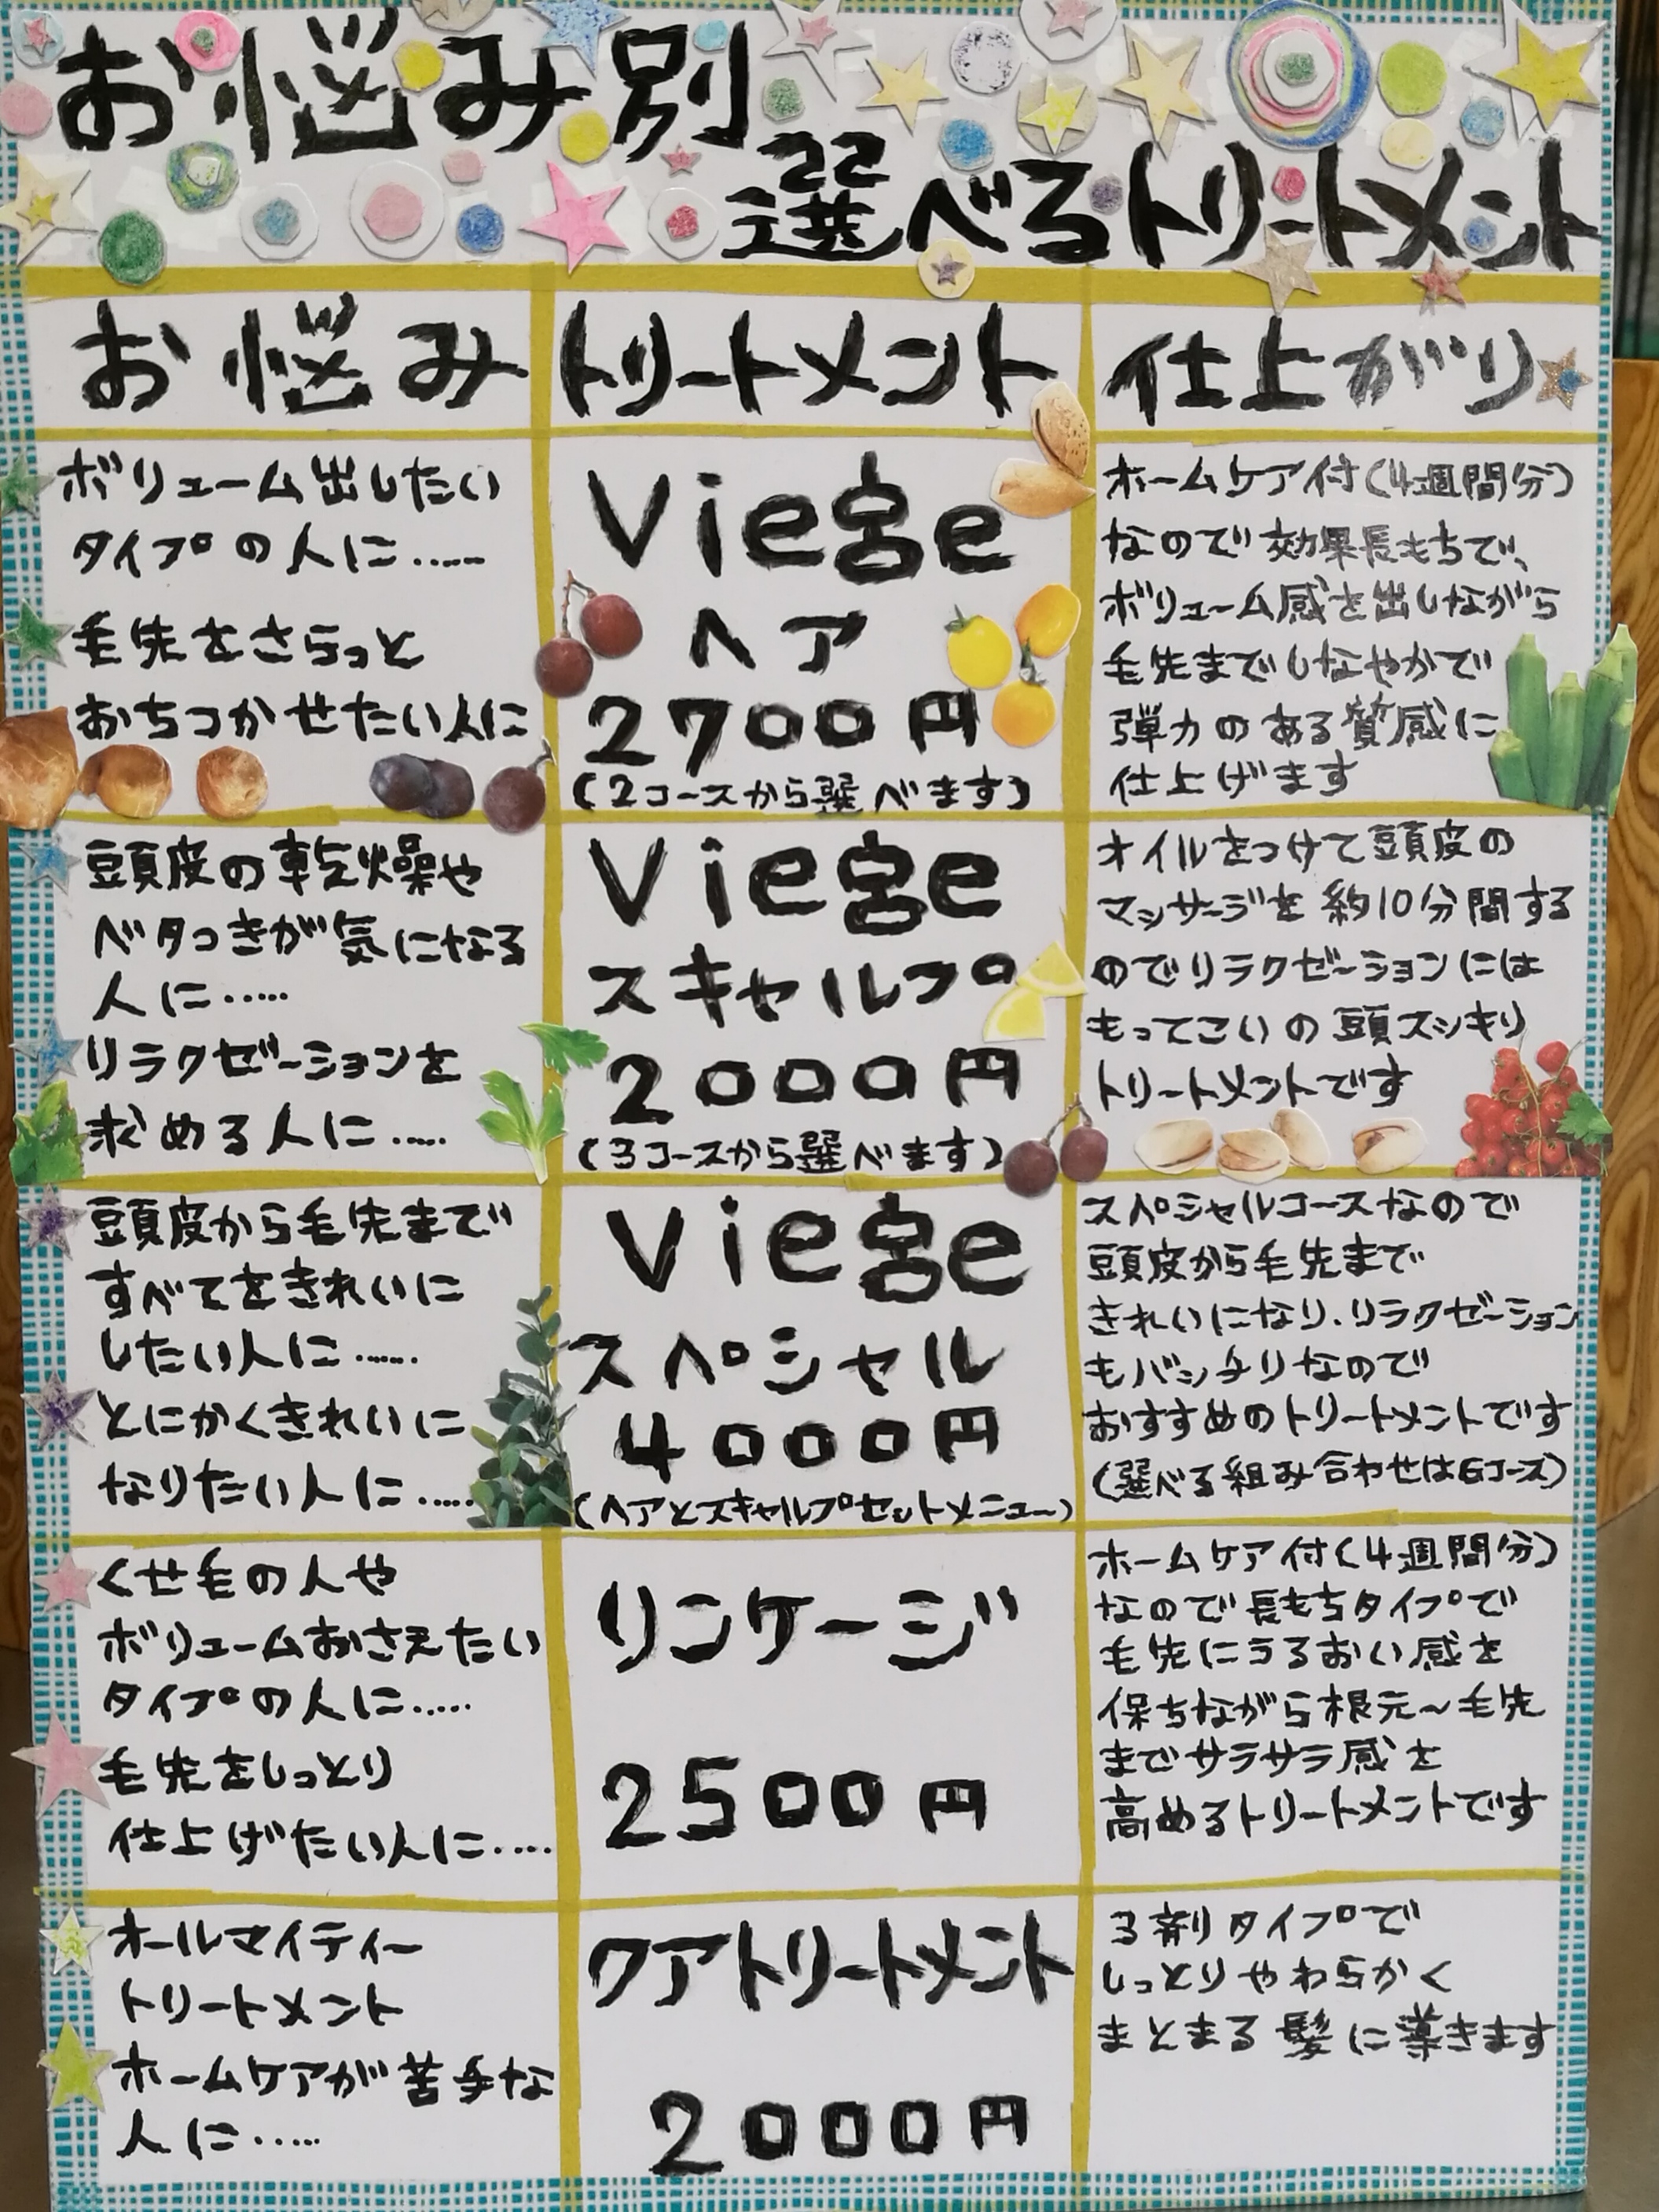 お悩み別
選べるトリートメント
お悩み
トリートメント
仕上がり
ボリューム出したい
タイプの人に.....
毛先をさらっと
おちつかせたい人に
Viege
ヘア
2700円
(2コースから選べます)
ホームケア付(4週間分)
なので効果長もちで、
ボリューム感を出しながら
毛先までしなやかで
弾力のある質感に
仕上げます
頭皮の乾燥や
ベタつきが気になる
人に.....
リラクゼーションを
求める人に.....
Viege
スキャルプ
2000円
(3コースから選べます)
オイルをつけて頭皮の
マッサージを約10分間する
のでリラクゼーションには
もってこいの頭スッキリ
トリートメントです
頭皮から毛先まで
すべてをきれいに
したい人に......
とにかくきれいに
なりたい人に.....
Viege
スペシャル
4000円
(ヘアとスキャルプセットメニュー)
スペシャルコースなので
頭皮から毛先まで
きれいになり、リラクゼーション
もバッチリなので
おすすめのトリートメントです
(選べる組み合わせは6コース)
くせ毛の人や
ボリュームおさえたい
タイプの人に.....
毛先をしっとり
仕上げたい人に....
リンケージ
2500円
ホームケア付(4週間分)
なので長もちタイプで
毛先にうるおい感を
保ちながら根元~毛先
までサラサラ感を
高めるトリートメントです
オールマイティー
トリートメント
ホームケアが苦手な
人に.....
クアトリートメント
2000円
3剤タイプで
しっとりやわらかく
まとまる髪に導きます